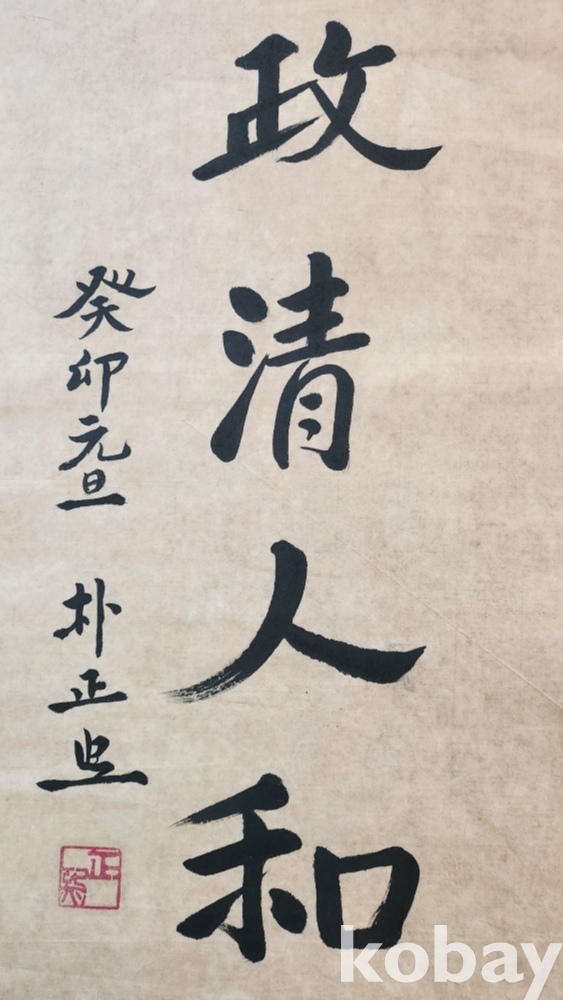 政清人和
癸卯元旦 朴正熙
正熙
kobay